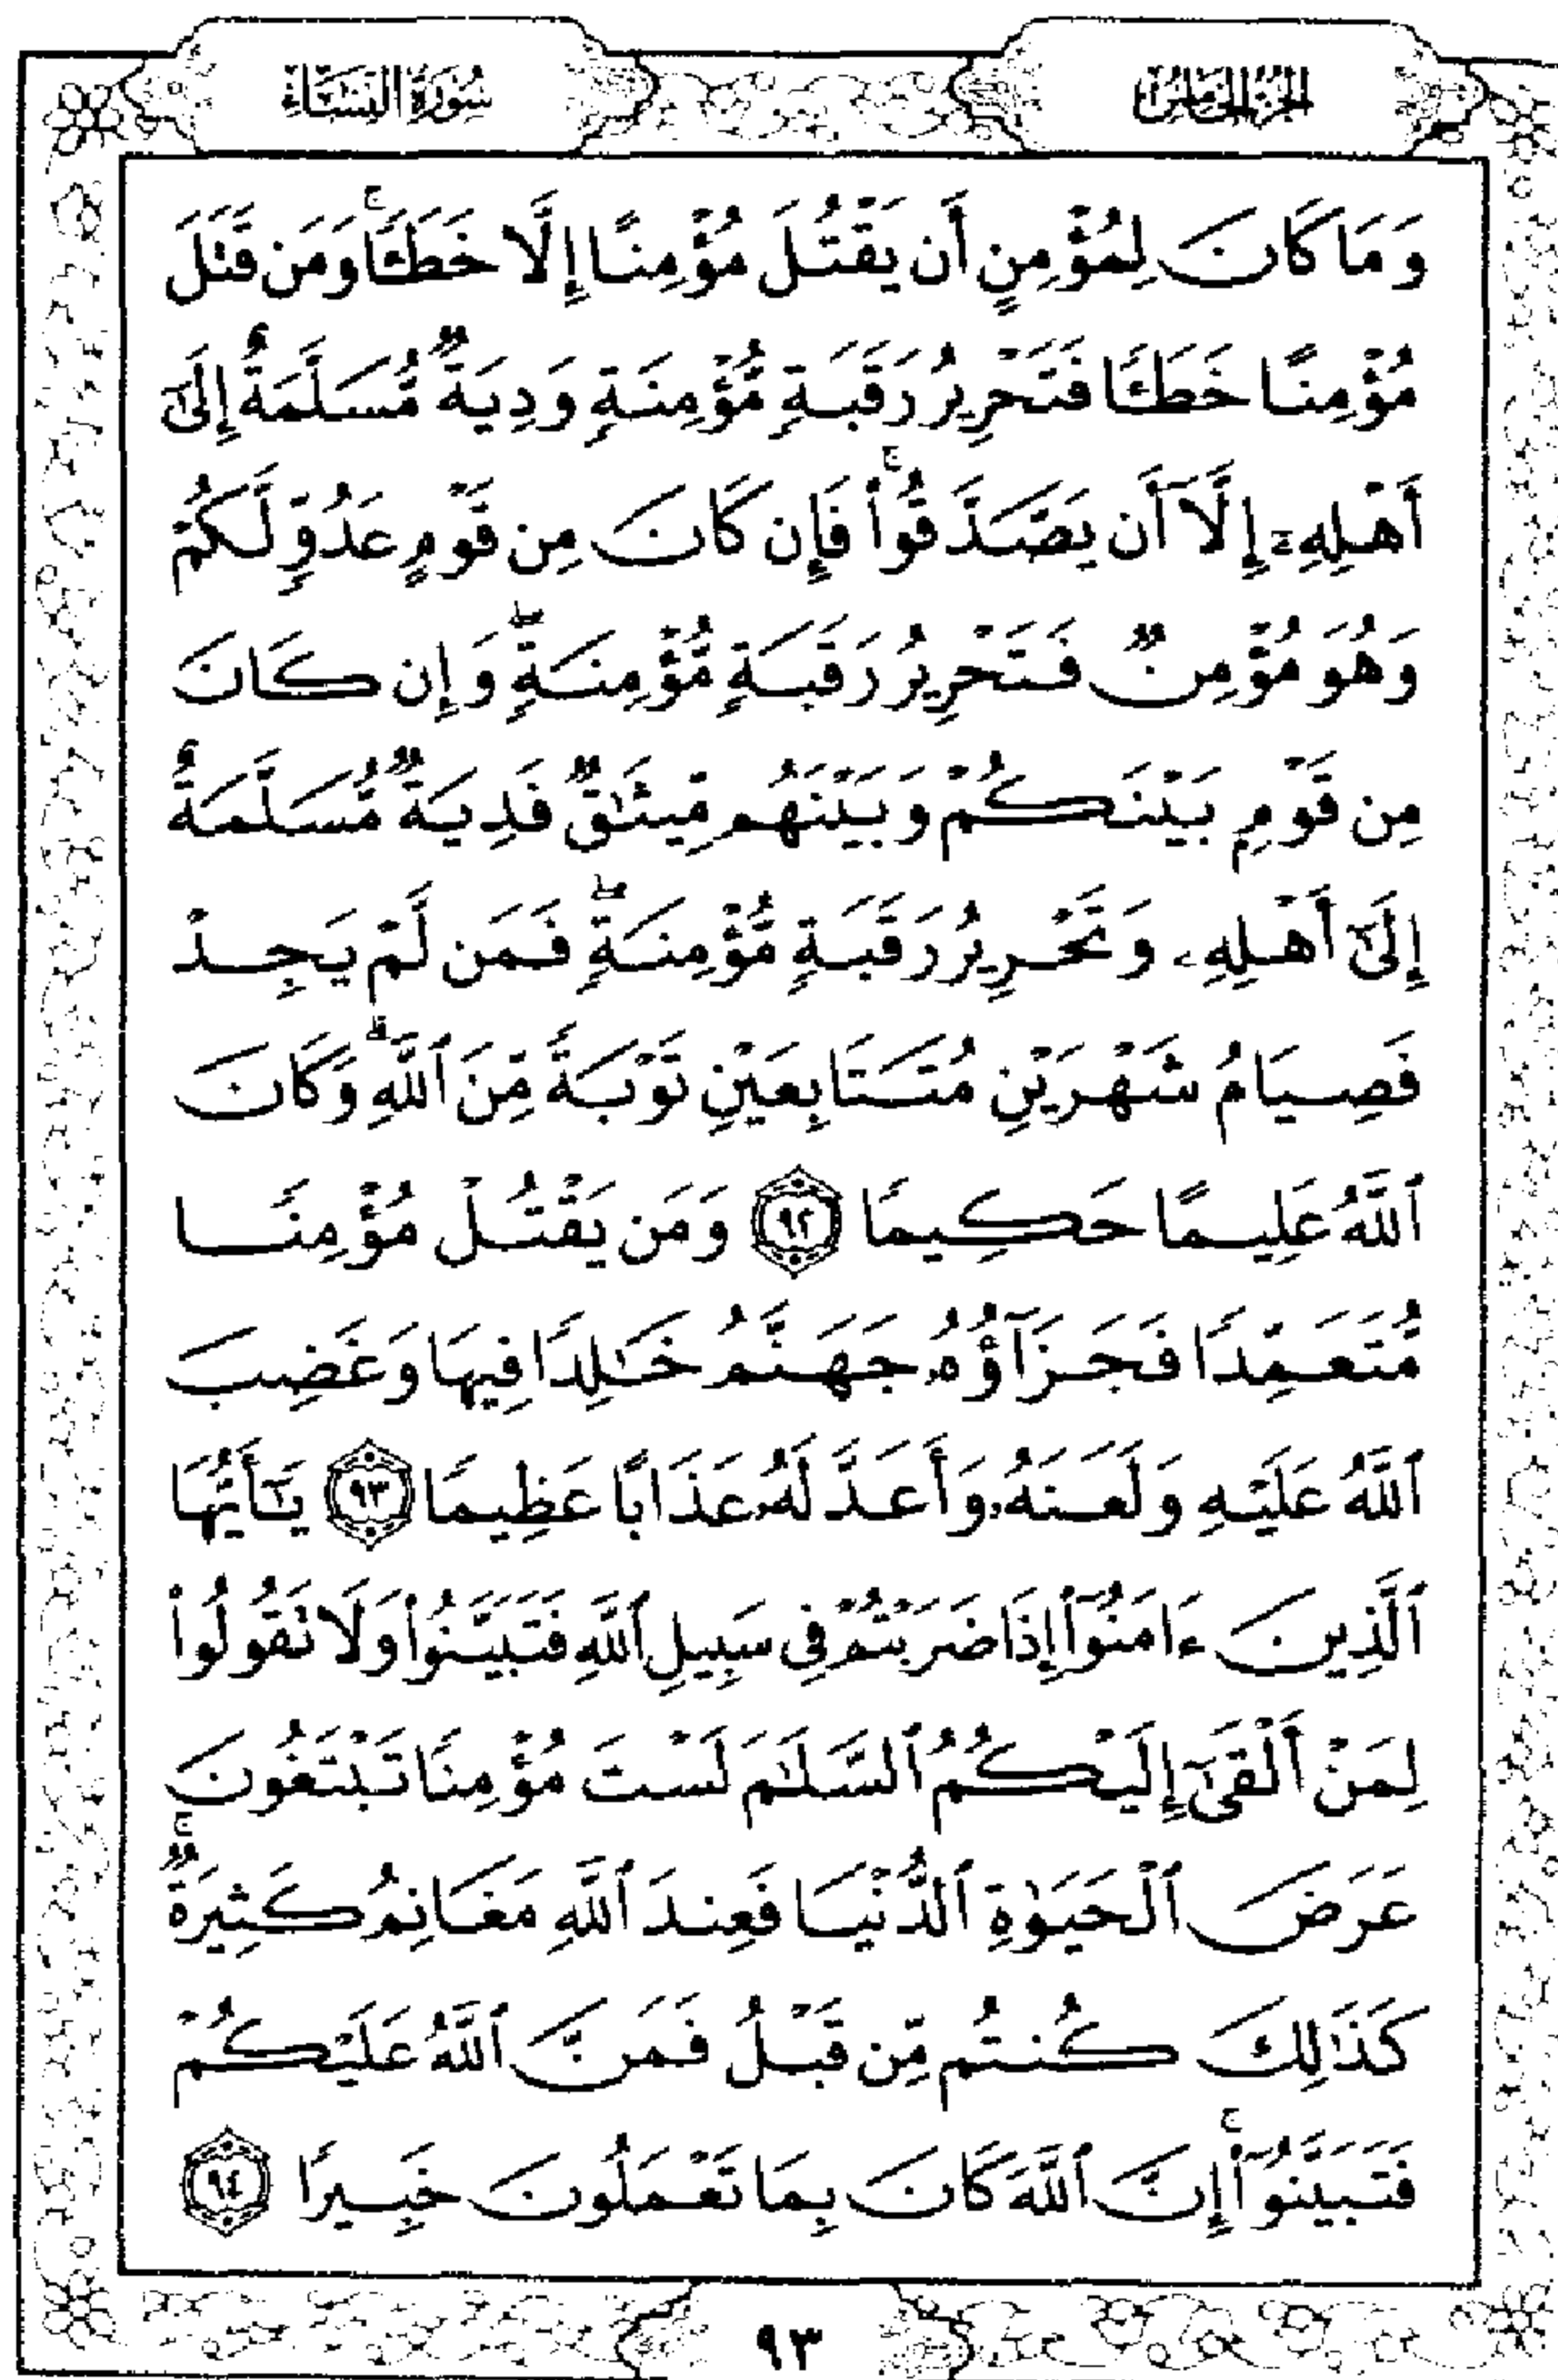 الجزء الخامس
سورة النساء
وَمَا كَانَ لِمُؤْمِنٍ أَن يَقْتُلَ مُؤْمِنًا إِلَّا خَطَـًٔاۚ وَمَن قَتَلَ
مُؤْمِنًا خَطَـًٔا فَتَحْرِيرُ رَقَبَةٍ مُّؤْمِنَةٍ وَدِيَةٌ مُّسَلَّمَةٌ إِلَىٰٓ
أَهْلِهِۦٓ إِلَّآ أَن يَصَّدَّقُوا۟ۚ فَإِن كَانَ مِن قَوْمٍ عَدُوٍّ لَّكُمْ
وَهُوَ مُؤْمِنٌ فَتَحْرِيرُ رَقَبَةٍ مُّؤْمِنَةٍۖ وَإِن كَانَ
مِن قَوْمِۭ بَيْنَكُمْ وَبَيْنَهُم مِّيثَٰقٌ فَدِيَةٌ مُّسَلَّمَةٌ
إِلَىٰٓ أَهْلِهِۦ وَتَحْرِيرُ رَقَبَةٍ مُّؤْمِنَةٍۖ فَمَن لَّمْ يَجِدْ
فَصِيَامُ شَهْرَيْنِ مُتَتَابِعَيْنِ تَوْبَةً مِّنَ ٱللَّهِۗ وَكَانَ
ٱللَّهُ عَلِيمًا حَكِيمًا ٩٢ وَمَن يَقْتُلْ مُؤْمِنًا
مُّتَعَمِّدًا فَجَزَآؤُهُۥ جَهَنَّمُ خَٰلِدًا فِيهَا وَغَضِبَ
ٱللَّهُ عَلَيْهِ وَلَعَنَهُۥ وَأَعَدَّ لَهُۥ عَذَابًا عَظِيمًا ٩٣ يَٰٓأَيُّهَا
ٱلَّذِينَ ءَامَنُوٓا۟ إِذَا ضَرَبْتُمْ فِى سَبِيلِ ٱللَّهِ فَتَبَيَّنُوا۟ وَلَا تَقُولُوا۟
لِمَنْ أَلْقَىٰٓ إِلَيْكُمُ ٱلسَّلَٰمَ لَسْتَ مُؤْمِنًا تَبْتَغُونَ
عَرَضَ ٱلْحَيَوٰةِ ٱلدُّنْيَا فَعِندَ ٱللَّهِ مَغَانِمُ كَثِيرَةٌۚ
كَذَٰلِكَ كُنتُم مِّن قَبْلُ فَمَنَّ ٱللَّهُ عَلَيْكُمْ
فَتَبَيَّنُوٓا۟ۚ إِنَّ ٱللَّهَ كَانَ بِمَا تَعْمَلُونَ خَبِيرًا ٩٤
٩٣